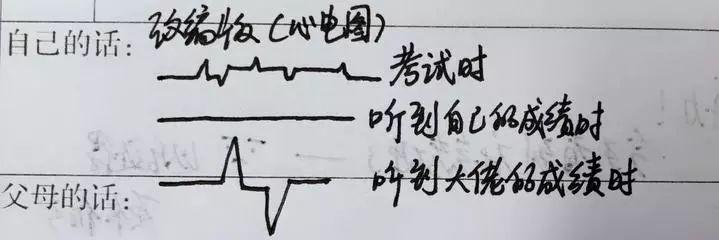 自己的话：改编版（心电图）
考试时
听到自己的成绩时
听到大佬的成绩时
父母的话：